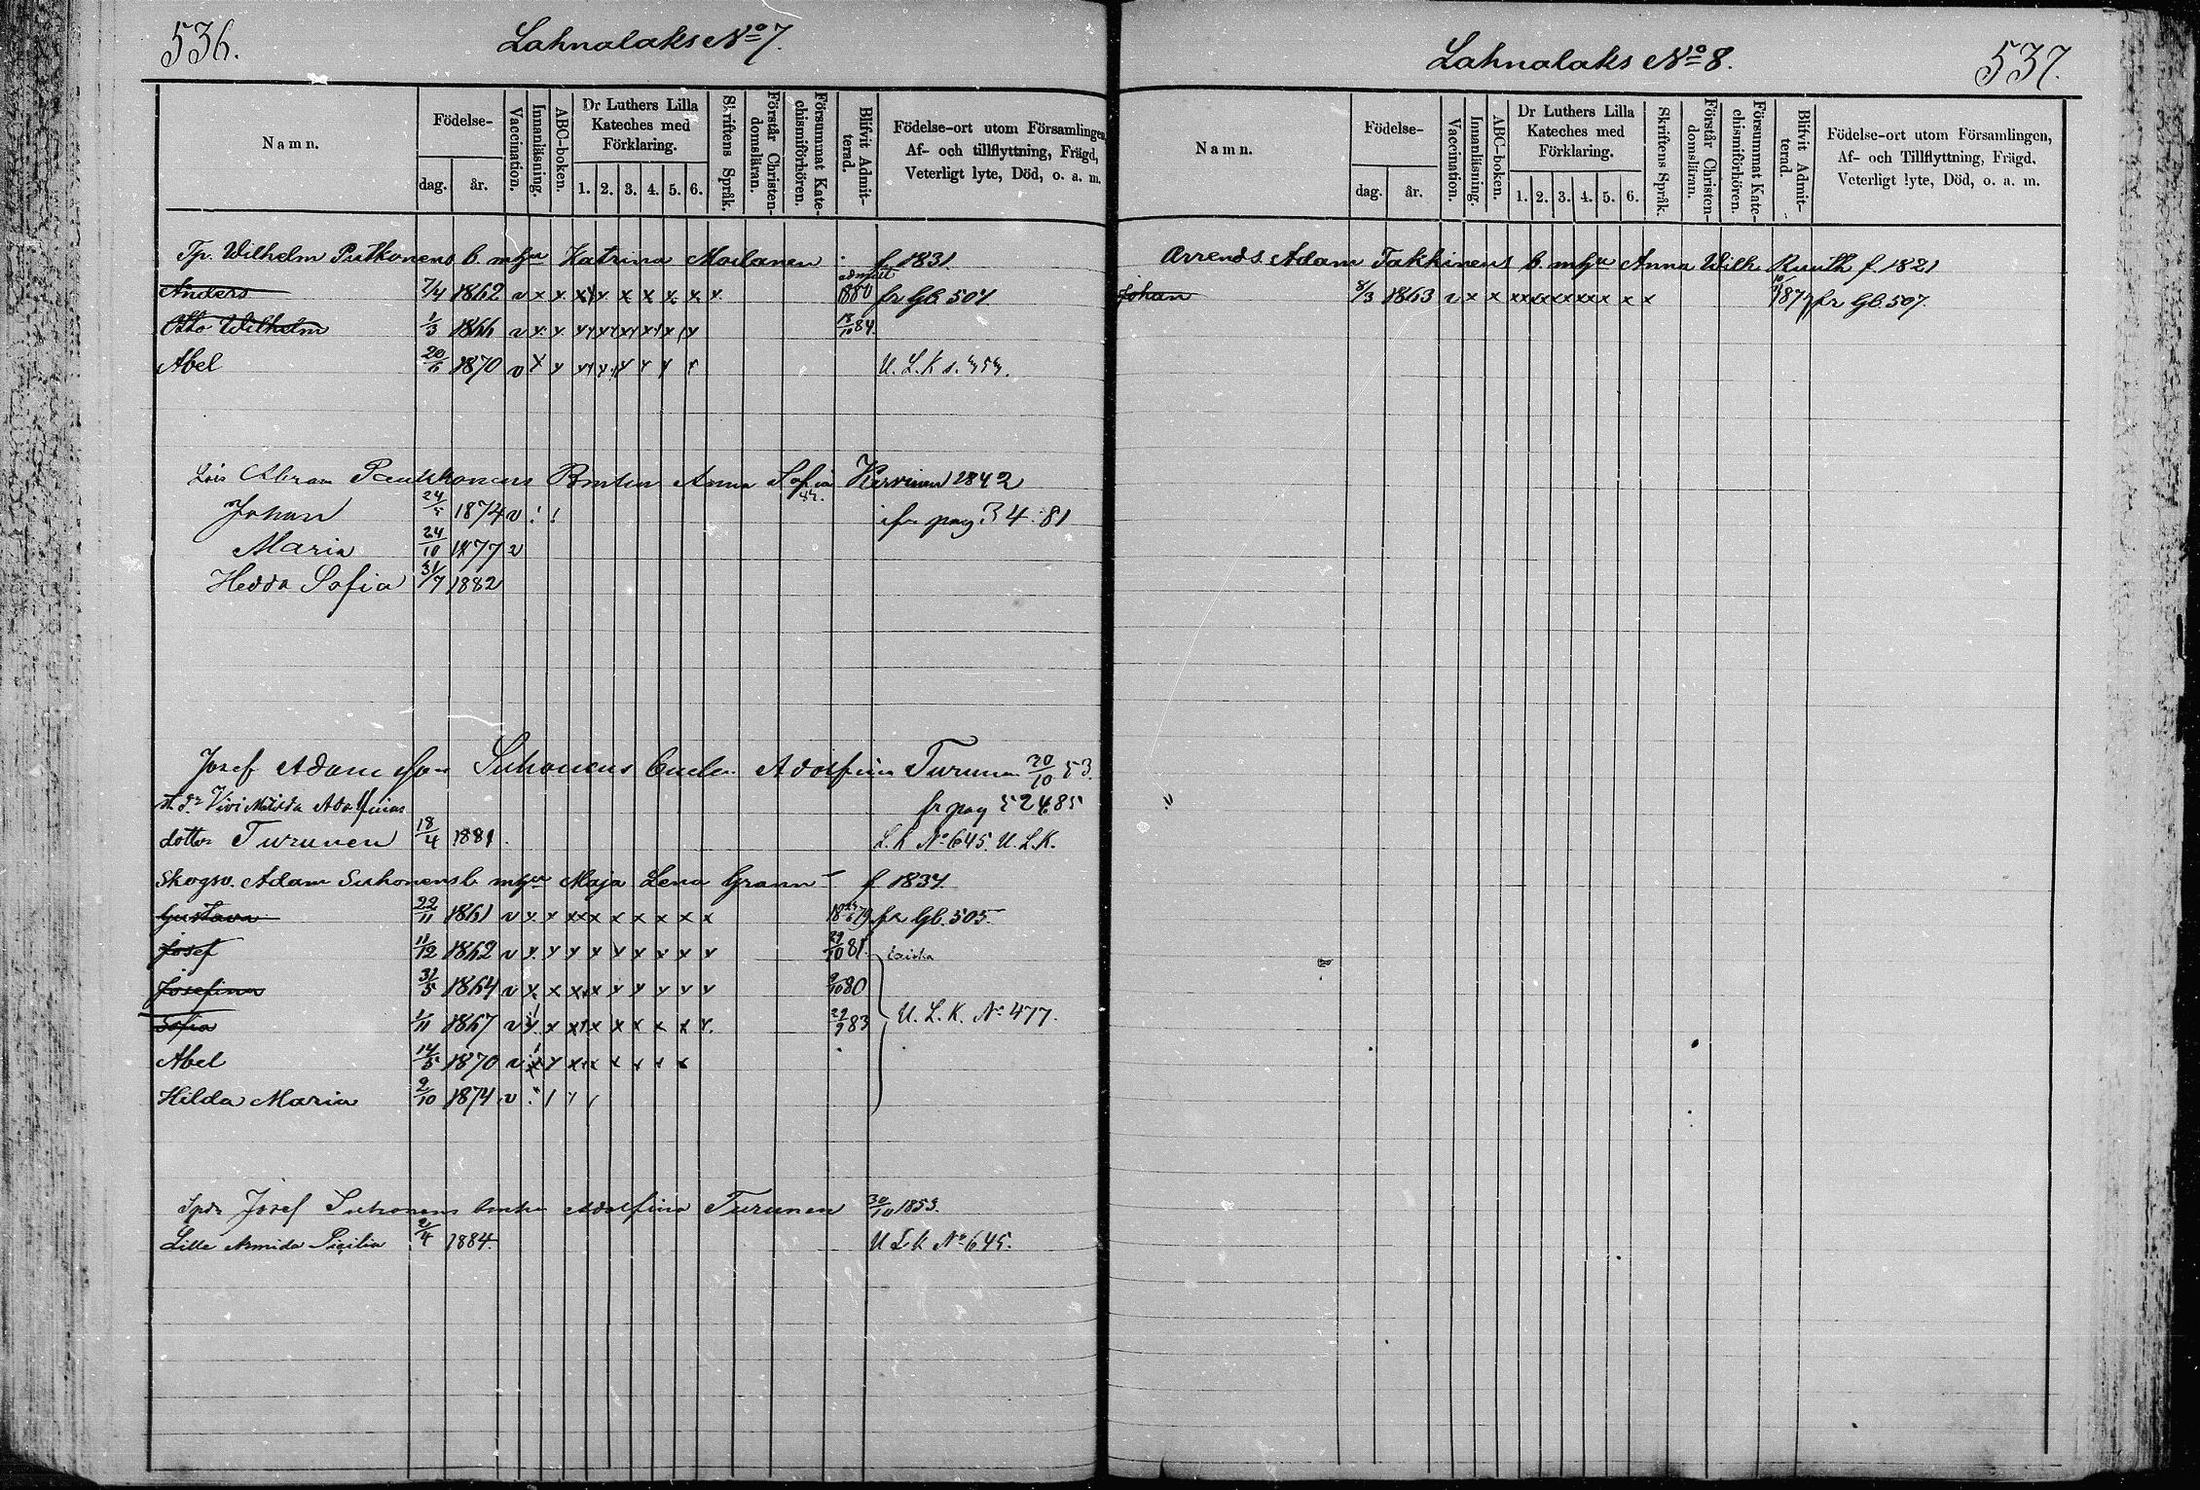 536.
Lahnalaks No 7.
Namn.
Födelse-
dag.
år.
Vaccination.
Innanläsning.
ABC-boken.
Dr Luthers Lilla
Kateches med
Förklaring.
1. 2. 3. 4. 5. 6.
Skriftens Språk.
Förstår Christen-
domsläran.
Försummat Kate-
chismiförhören.
Blifvit Admit-
terad.
Födelse-ort utom Församlingen,
Af- och tillflyttning, Frägd,
Veterligt lyte, Död, o. a. m.
Tp. Wilhelm b. m hu Katrina Moilanen f. 1831.
Anders 7/4 1862 v x x x x x x x x x admitt 1880 fr Gb. 507
Otto Wilhelm 1/3 1866 v x x x x x x x x 18/10 84.
Abel 20/5 1870 v x x x x x x x x U. L. K s. 353.
Lös Abram Anna Sofia 1842
Johan 24/5 1874 v ! ! pag 34 81
Maria 24/10 1877 v
Hedda Sofia 31/7 1882
Josef Adam Suhonens Adolfina Turunen 20/10 53.
Vivi Matilda Adolfinas fr pag 524 85
dotter Turunen 18/4 1881. L. K No 645. U. L. K.
Skogsv. Adam Suhonens b. m hu Maja Lena Grann f 1834
Gustava 22/11 1861 v x x x x x x x x x x fr Gb. 505.
Josef 11/12 1862 v x x x x x x x x x 29/10 81.
Josefina 31/5 1864 v x x x x x x x x x 9/10 80
Sofia 1/11 1867 v x x x x x x x x x 22/9 83 U. L. K. No 477.
Abel 14/5 1870 v x x x x x x x x
Hilda Maria 2/10 1874 v
Josef Suhonens Adolfina Turunen 30/10 1853.
Lille Armida 2/4 1884. U L K No 645.
Lahnalaks No 8.
537.
Namn.
Födelse-
dag.
år.
Vaccination.
Innanläsning.
ABC-boken.
Dr Luthers Lilla
Kateches med
Förklaring.
1. 2. 3. 4. 5. 6.
Skriftens Språk.
Förstår Christen-
domsläran.
Försummat Kate-
chismiförhören.
Blifvit Admit-
terad.
Födelse-ort utom Församlingen,
Af- och Tillflyttning, Frägd.
Veterligt lyte, Död, o. a. m.
Arrends. Adam Takkinens b. m hu Anna Wilh. Ruuth f. 1821
Johan 8/3 1863 v x x x x x x x x x x x fr Gb. 507.